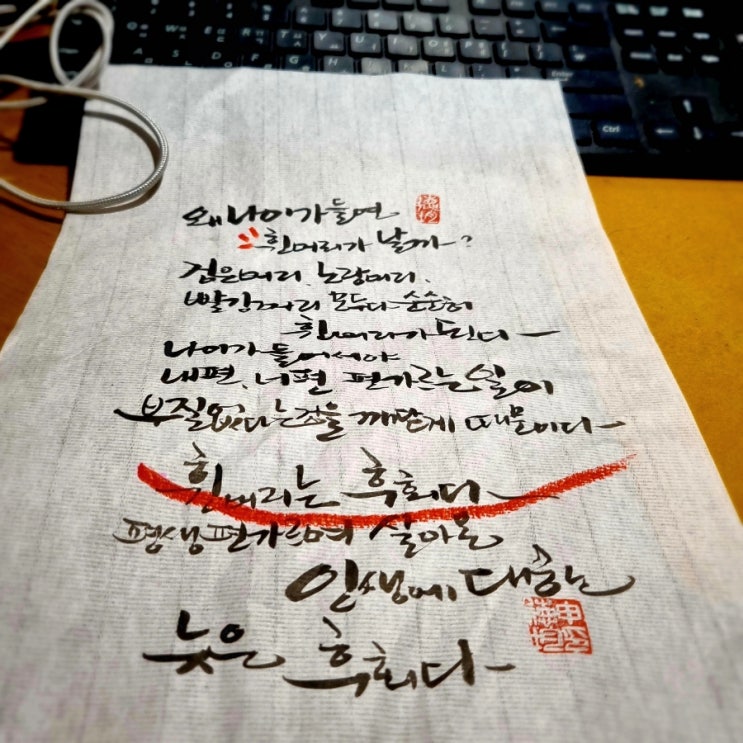 왜 나이가 들면
흰머리가 날까?
검은머리, 노랑머리,
빨강머리 모두다 순순히
흰머리가 된다
나이가 들어서야
내편, 너편 편가르는 일이
부질없다는 것을 깨닫게 때문이다
흰머리는 후회다
평생 편가르며 살아온
인생에 대한
늦은 후회다
Ctrl